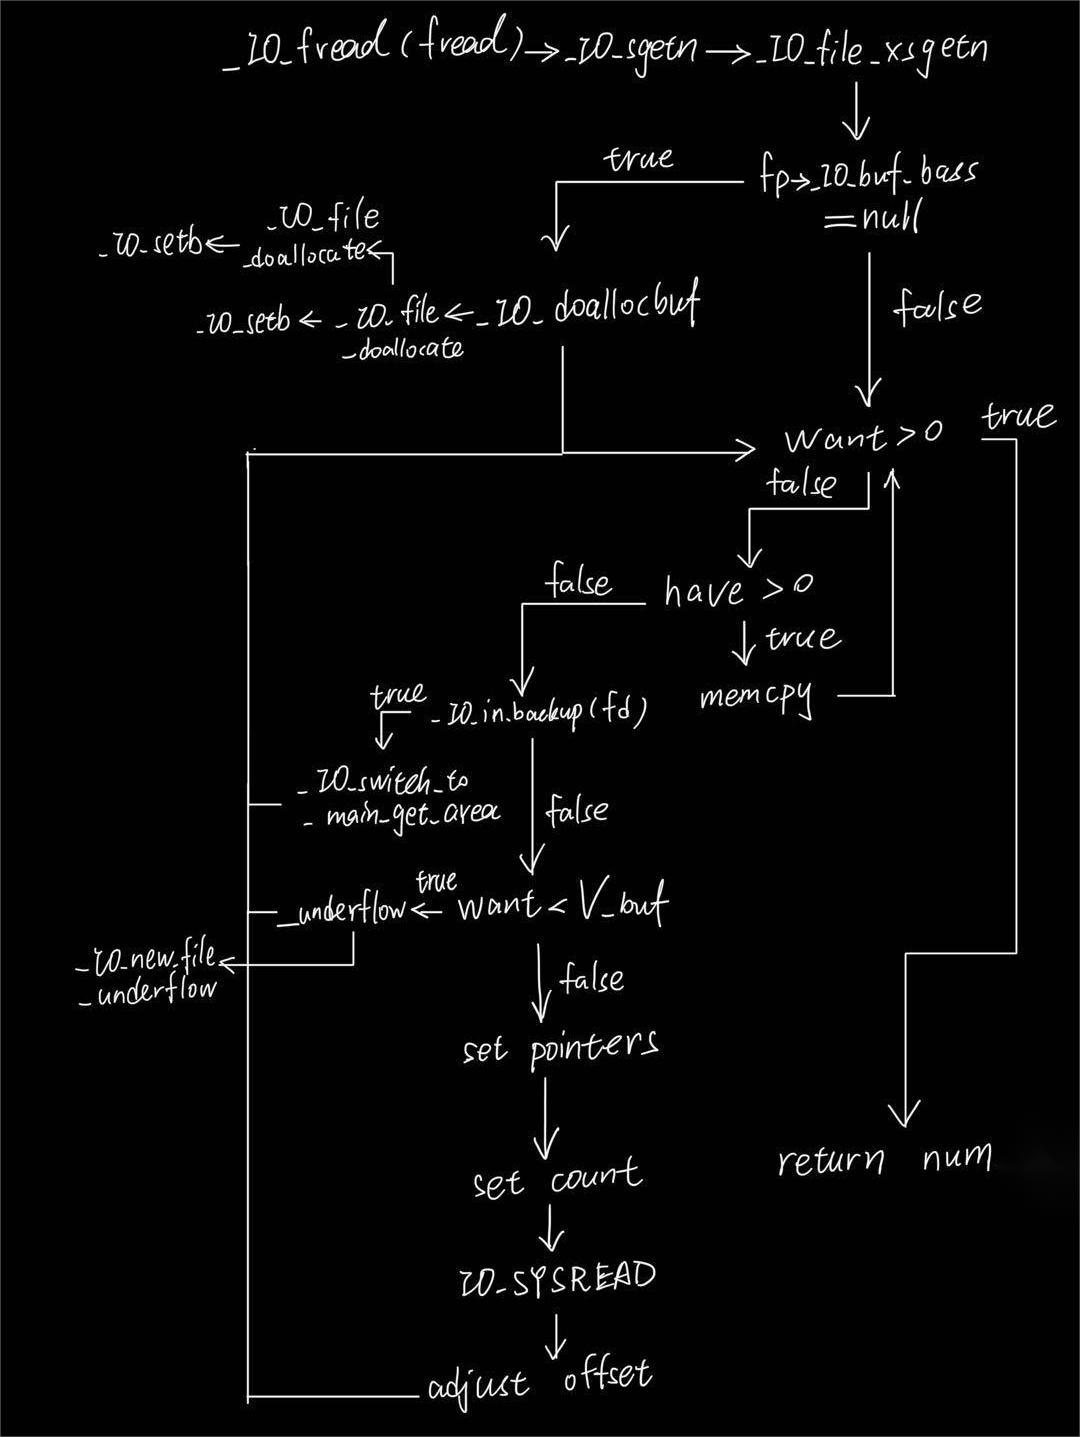 _IO_fread(fread)→_IO_sgetn→_IO_file_xsgetn
true
fp→_IO_buf_bass
=null
_IO_setb←_IO_file
_doallocate
false
_IO_setb←_IO_file←_IO_doallocbuf
_doallocate
want>0
true
false
have>0
false
true
memcpy
true
_IO_in_backup(fd)
_IO_switch_to
_main_get_area
false
_underflow←want<V_buf
true
_IO_new_file
_underflow
false
set pointers
return num
set count
IO_SYSREAD
adjust offset